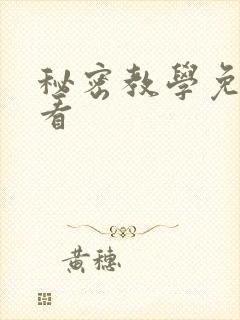 秘密教學免
看
黃穗